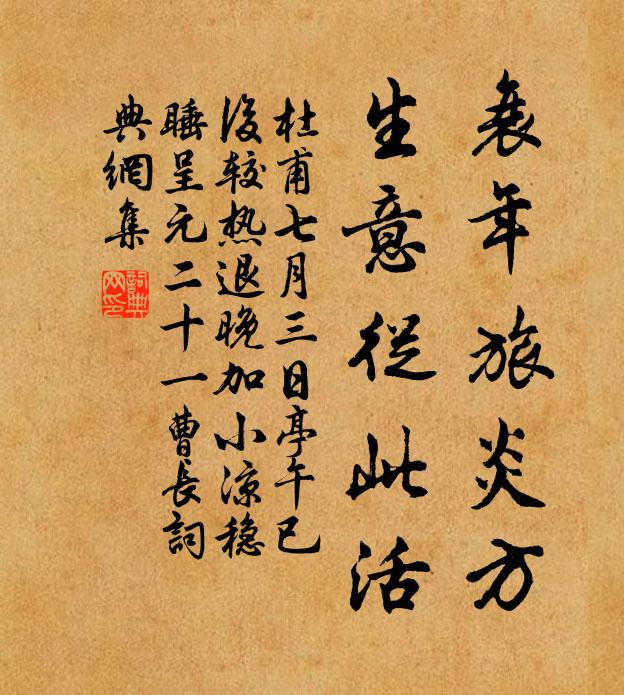 衰年旅炎方
生意從此活
杜甫七月三日亭午已
後較热退晚加小凉穩
睡呈元二十一曹長詞
典網集
詞典
网印